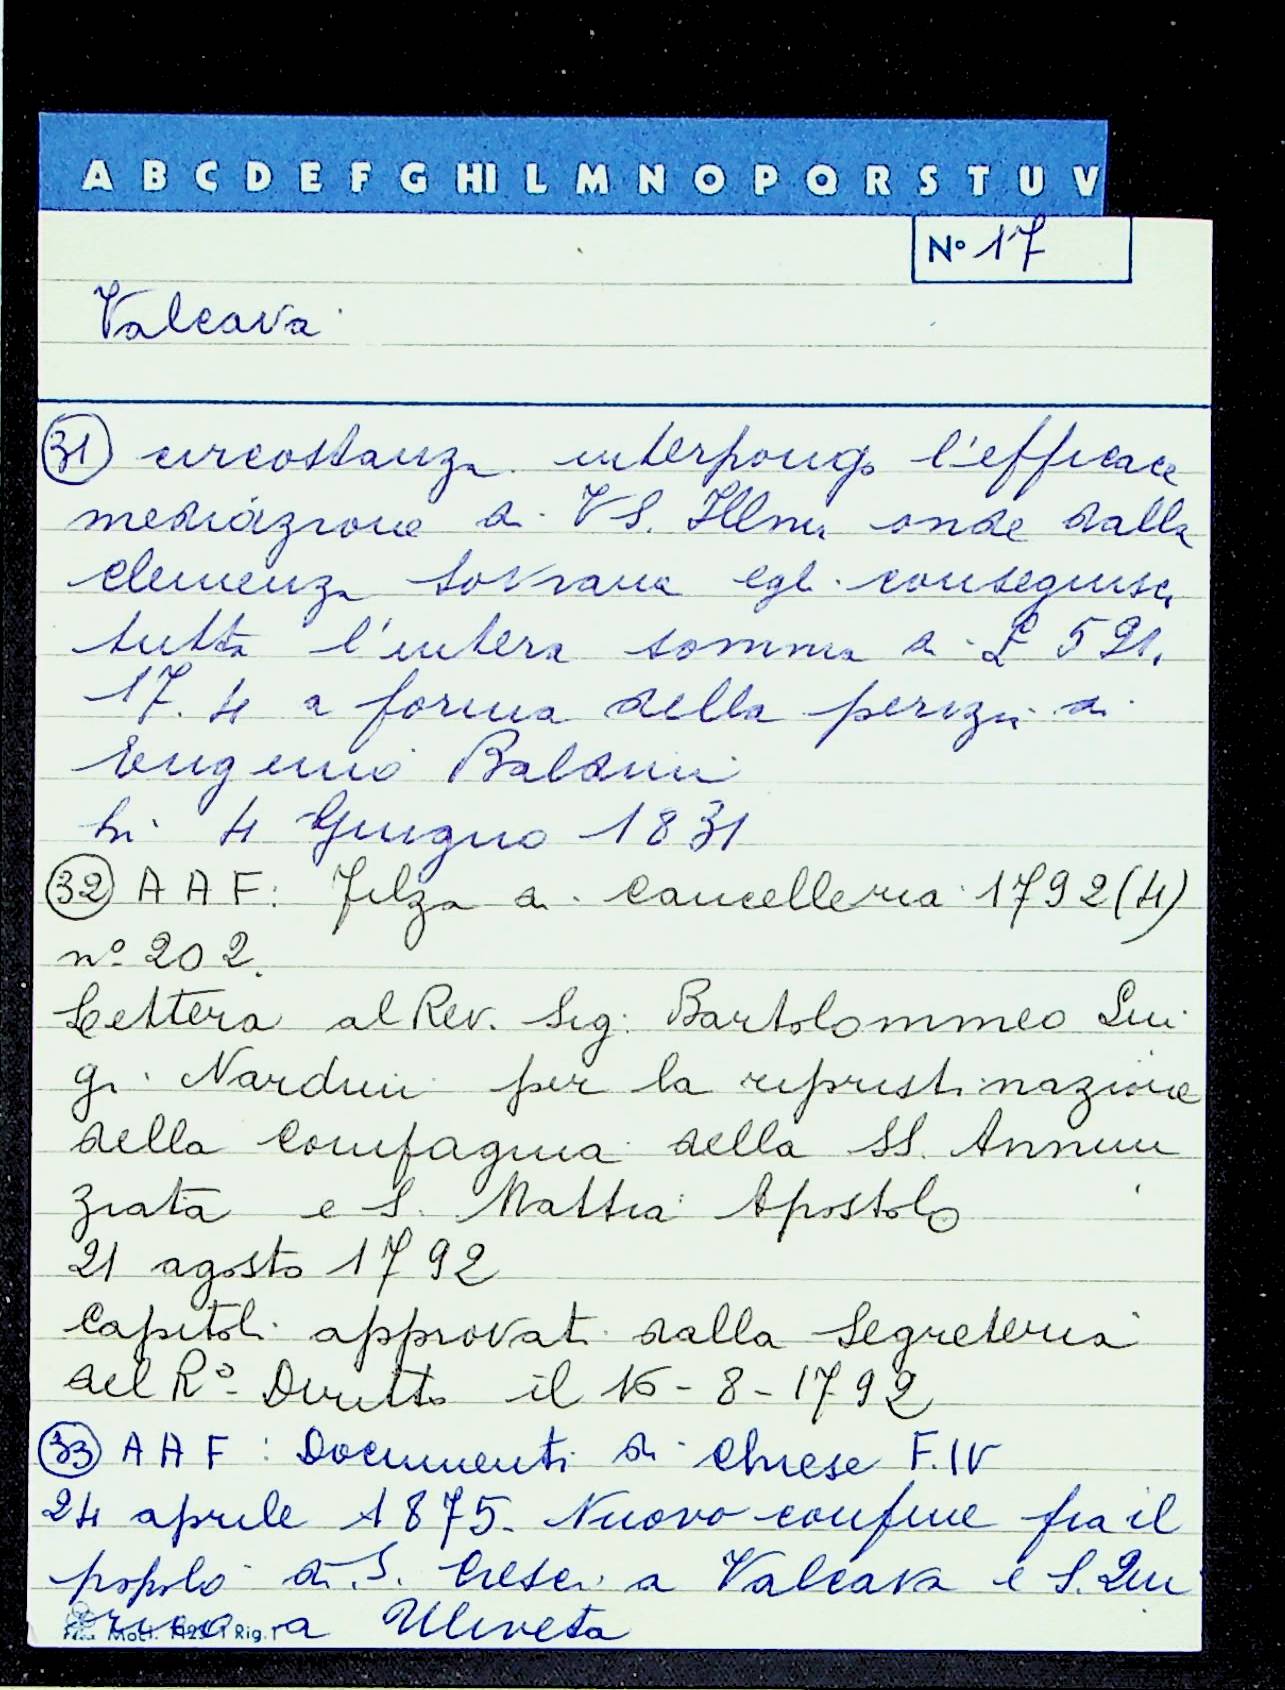 A B C D E F G HI L M N O P Q R S T U V
N° 17
Valcava
31 circostanza interpongo l'efficace
mediazione di VS. Illma onde dalla
clemenza sovrana egli conseguisca
tutta l'intera somma di £ 521.
17.4 a forma della perizia di
Eugenio Baldini
li 4 Giugno 1831
32 A A F: Filza di Cancelleria 1792 (4)
n° 202.
Lettera al Rev. Sig. Bartolommeo Lui
gi Nardini per la ripristinazione
della Compagnia della SS. Annun
ziata e S. Mattia Apostolo
21 agosto 1792
Capitoli approvati dalla Segreteria
del R° Diritto il 16-8-1792
33 A A F: Documenti di Chiese F.IV
24 aprile 1875. Nuovo confine fra il
popolo di S. Cresci a Valcava e S. Qui
a Uliveta